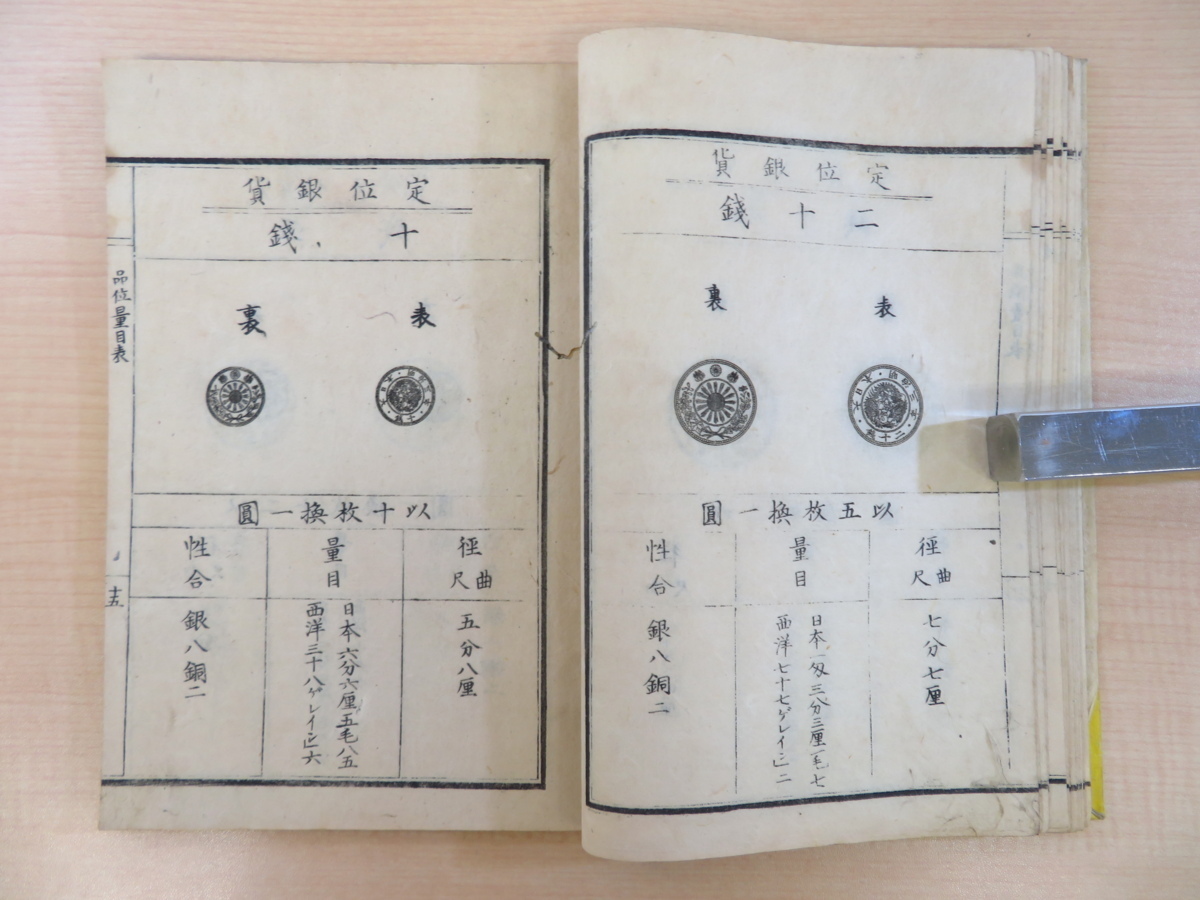 定位銀貨
二十錢
表
裏
以五枚換一圓
徑 曲尺
七分七厘
量目
日本一匁三分三厘一毛七
西洋七十七ゲレイン二
性合
銀八銅二
定位銀貨
十錢
表
裏
以十枚換一圓
徑 曲尺
五分八厘
量目
日本六分六厘五毛八五
西洋三十八ゲレイン六
性合
銀八銅二
品位量目表
十五